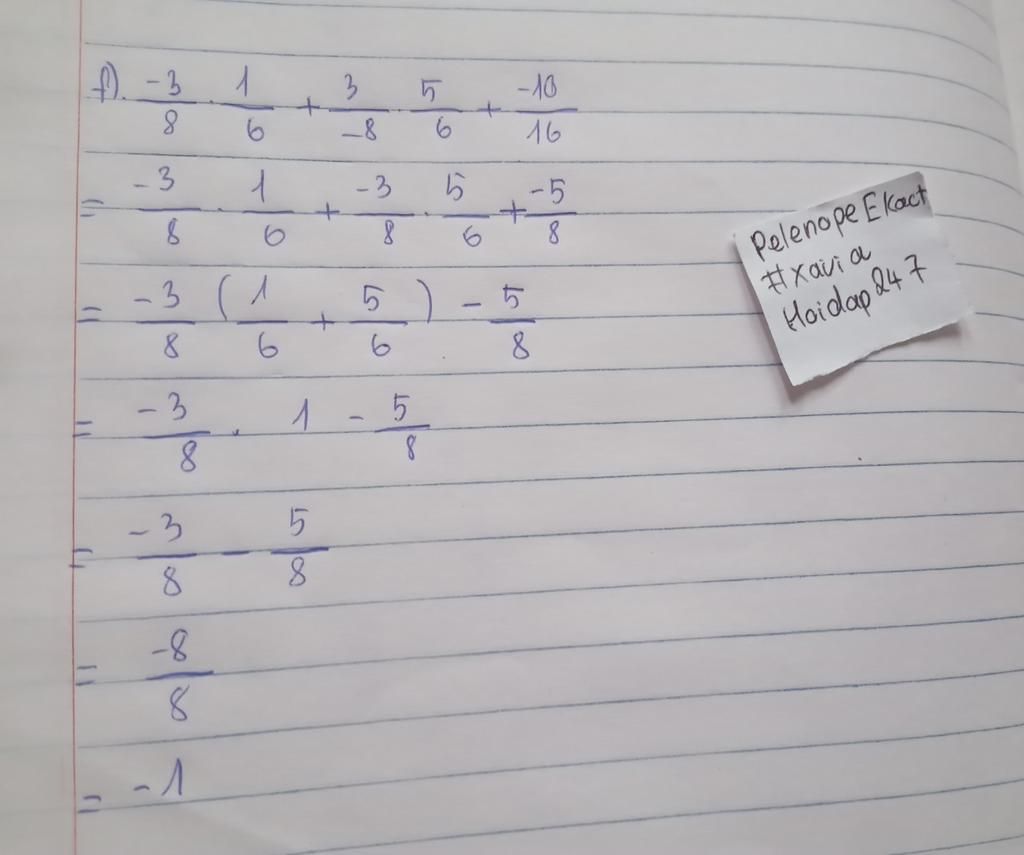 f). -3/8 . 1/6 + 3/-8 . 5/6 + -10/16
= -3/8 . 1/6 + -3/8 . 5/6 + -5/8
= -3/8 ( 1/6 + 5/6 ) - 5/8
= -3/8 . 1 - 5/8
= -3/8 - 5/8
= -8/8
= -1
Pelenope Ekact
#xavia
Hoidap247